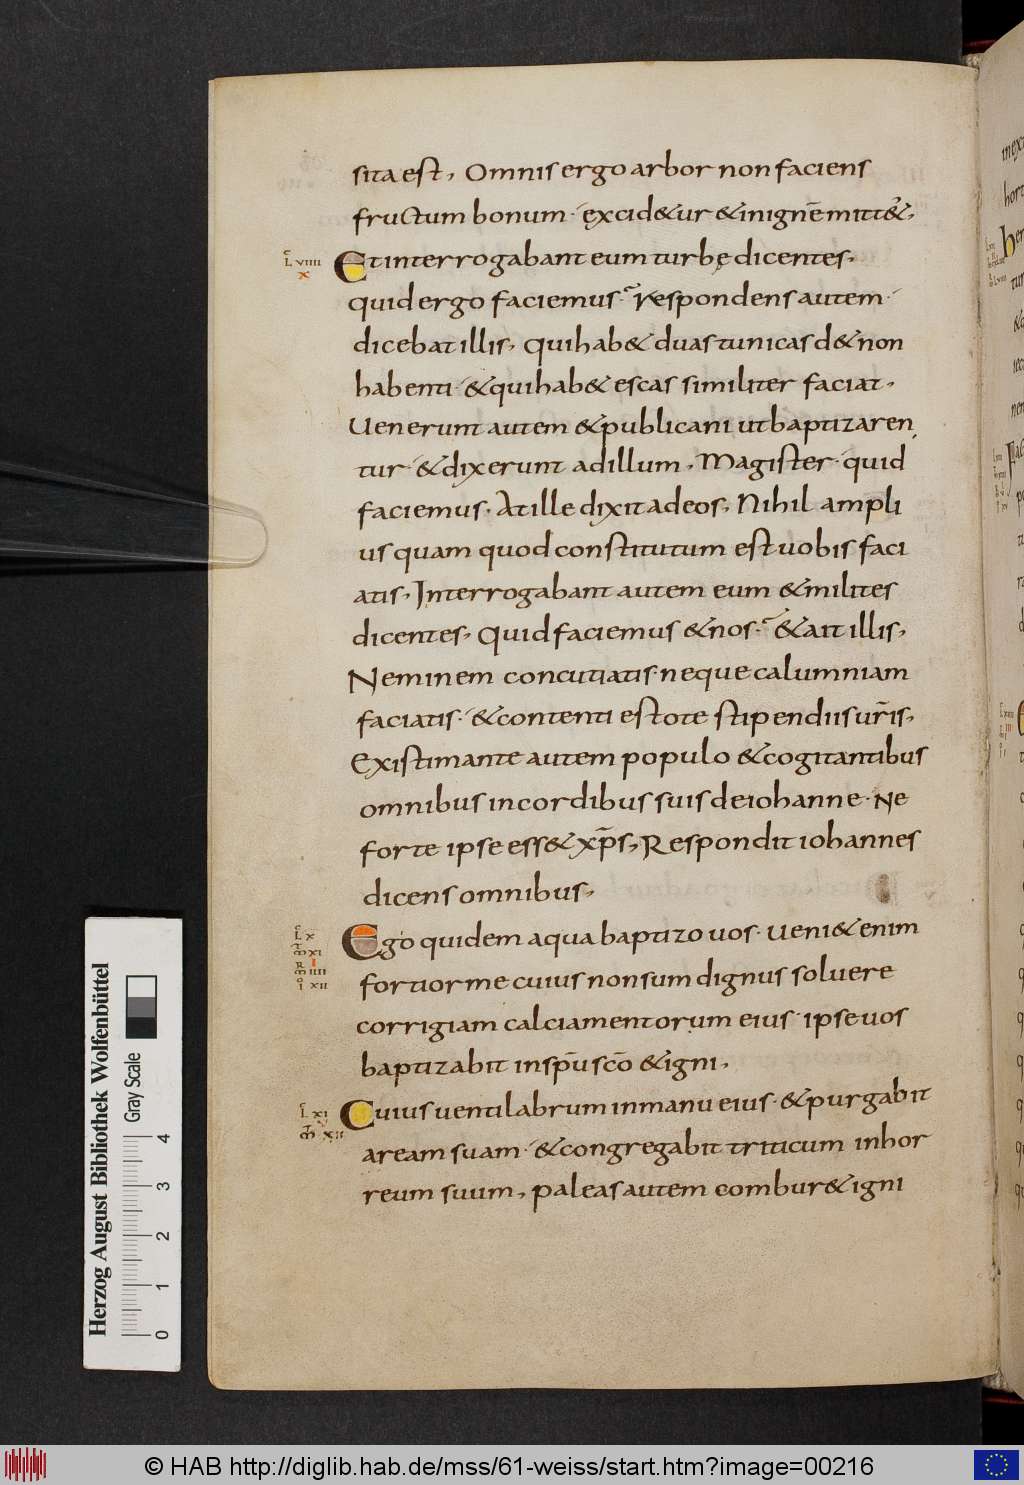 sita est, Omnis ergo arbor non faciens
fructum bonum· excid&ur & inignē mitt&,
L VIIII
X
Et interrogabant eum turbę dicentes,
quid ergo faciemus· Respondens autem·
dicebat illis, Qui hab& duas tunicas d& non
habenti· & qui hab& escas similiter faciat,
Uenerunt autem & publicani ut baptizaren
tur· & dixerunt ad illum, Magister· quid
faciemus· At ille dixit ad eos, Nihil ampli
us quam quod constitutum est uobis faci
atis, Interrogabant autem eum & milites
dicentes, Quid faciemus & nos· & ait illis,
Neminem concutiatis· neque calumniam
faciatis· & contenti estote stipendiis ur̄is,
Existimante autem populo & cogitantibus
omnibus in cordibus suis de iohanne· Ne
forte ipse ess& xp̄s, Respondit iohannes
dicens omnibus,
L X
M XI
R I
M IIII
I XII
Ego quidem aqua baptizo uos· ueni& enim
fortior me cuius non sum dignus soluere
corrigiam calciamentorum eius· ipse uos
baptizabit in sp̄u sc̄o & igni,
L XI
V
M XII
Cuius uentilabrum in manu eius· & purgabit
aream suam· & congregabit triticum in hor
reum suum, paleas autem combur& igni
Herzog August Bibliothek Wolfenbüttel
Gray Scale
0 1 2 3 4
© HAB http://diglib.hab.de/mss/61-weiss/start.htm?image=00216